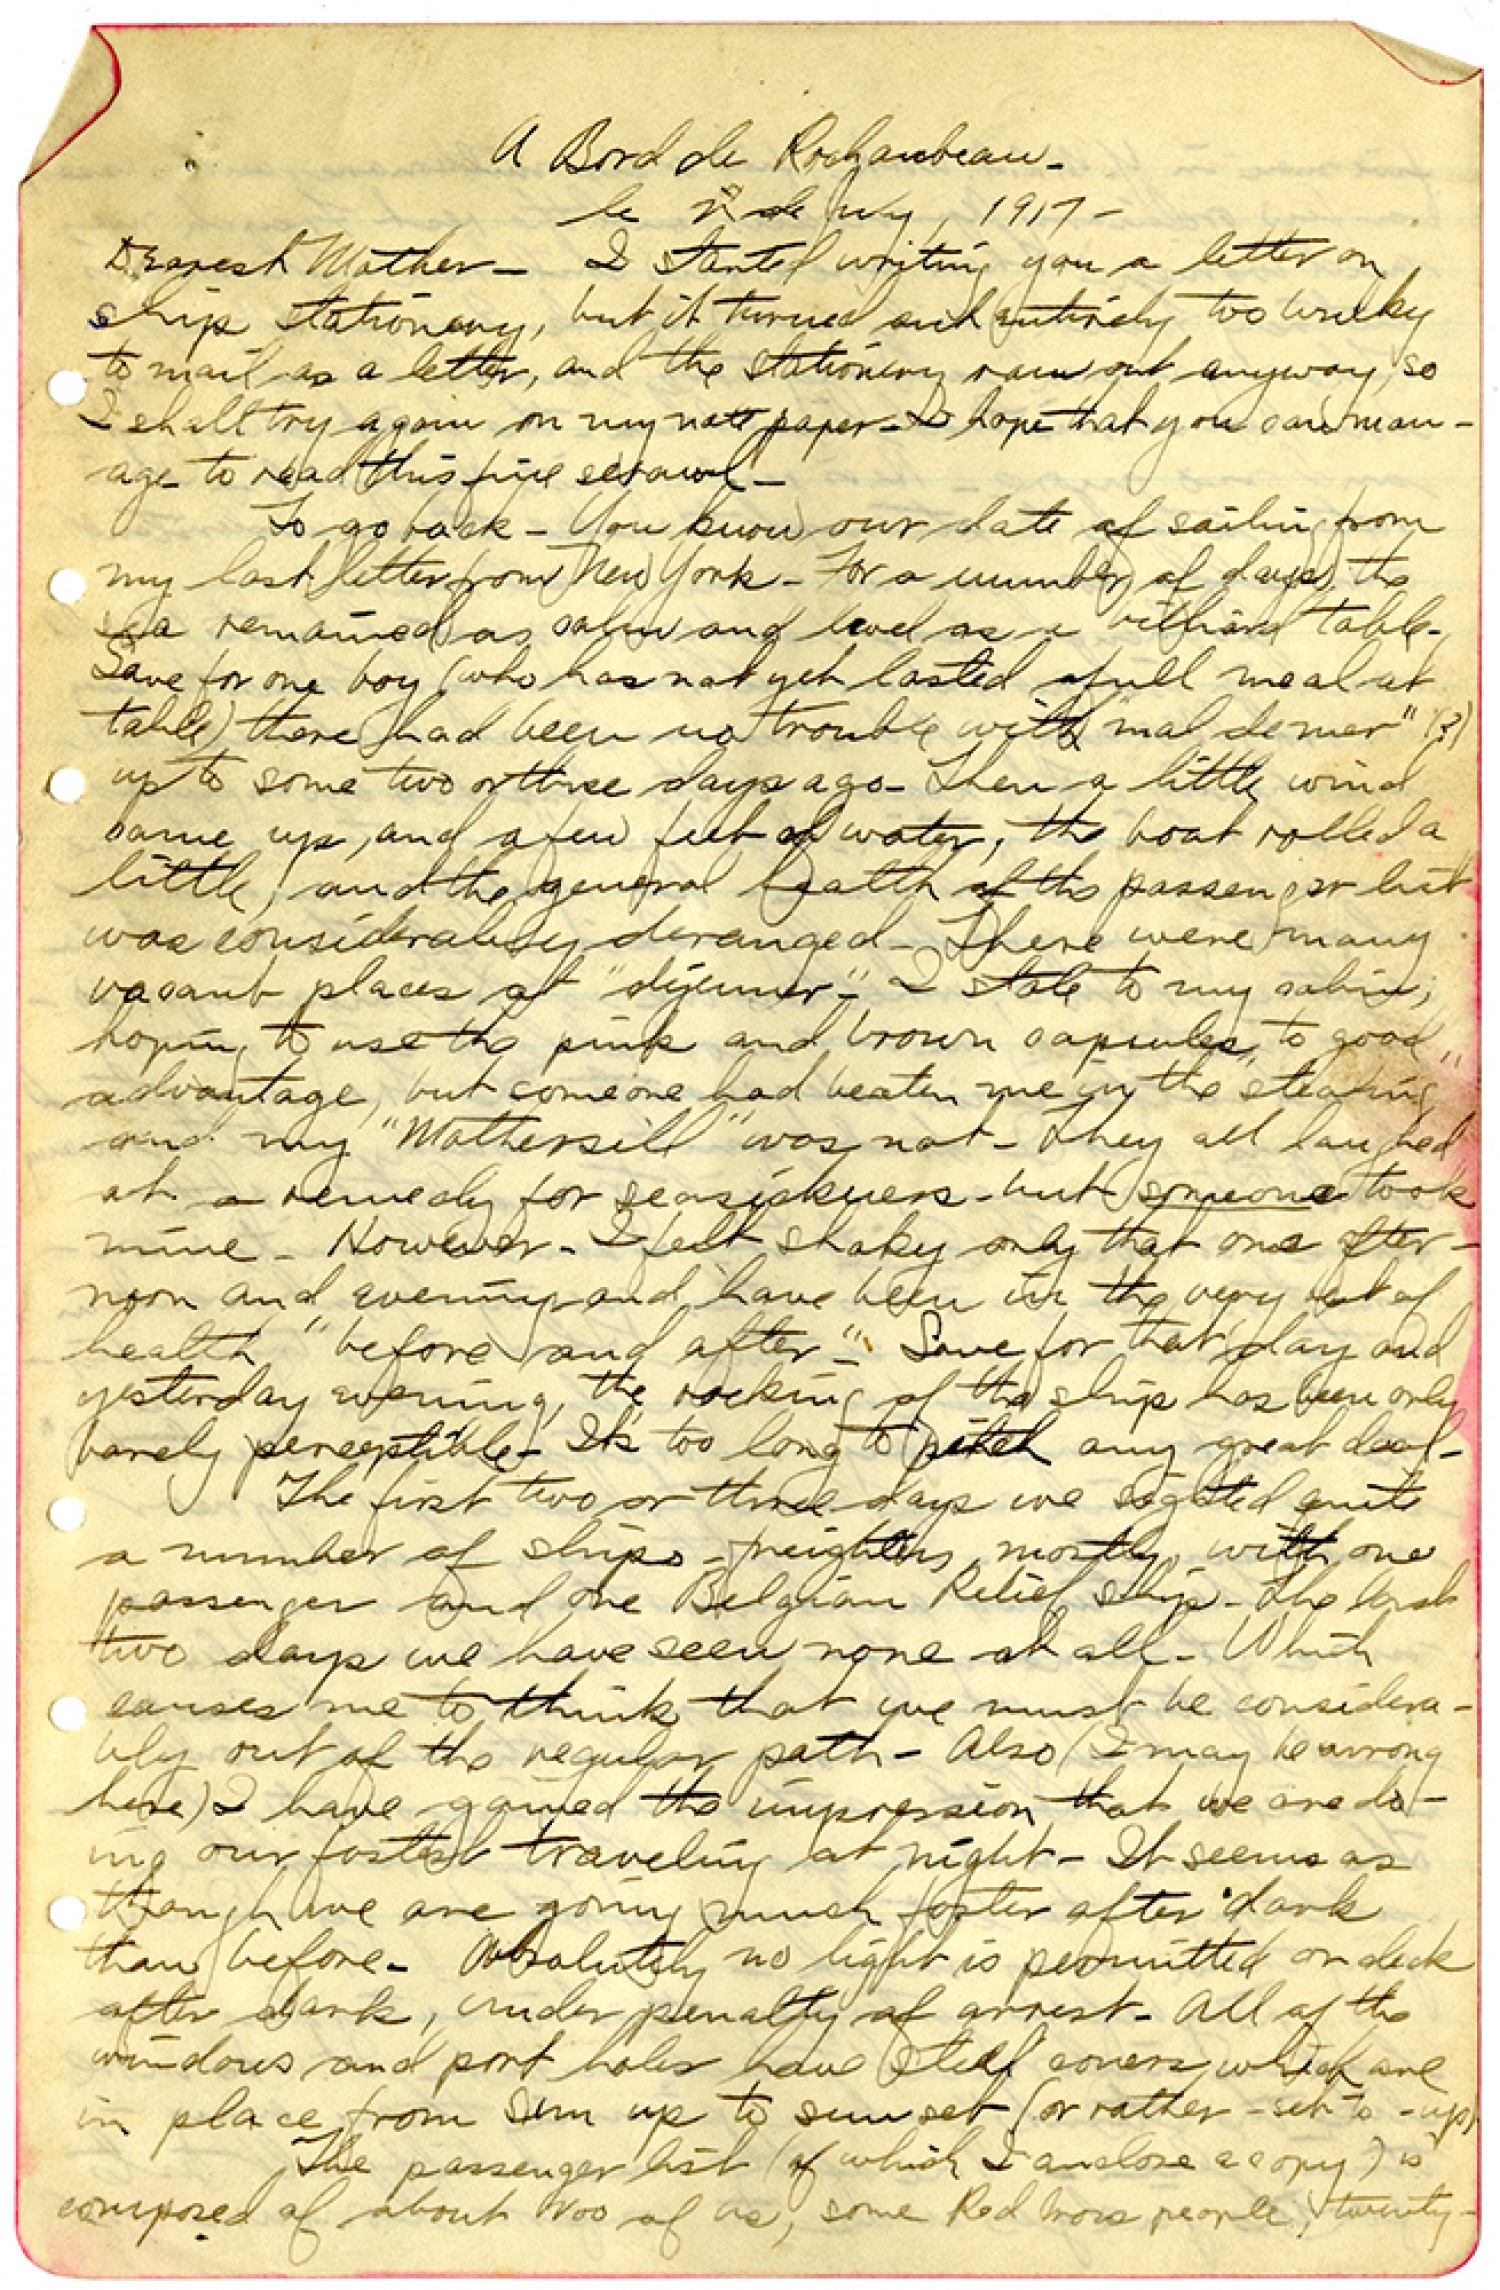 A Bord de Rochambeau-
le 2 de July, 1917-
Dearest Mother- I started writing you a letter on
ship stationery, but it turned out entirely too bulky
to mail as a letter, and the stationery ran out anyway, so
I shall try again on my note paper- I hope that you can man-
age to read this fine scrawl-
To go back- You know our date of sailing from
my last letter from New York- For a number of days the
sea remained as calm and level as a billiard table-
Save for one boy (who has not yet lasted a full meal at
table) there had been no trouble with "mal de mer" (?)
up to some two or three days ago- Then a little wind
came up, and a few feet of water, the boat rolled a
little, and the general health of the passenger list
was considerabley deranged- There were many
vacant places at "dijeuner"- I stole to my cabin,
hoping to use the pink and brown capsules to good
advantage, but someone had beaten me in the "stealing"
and my "Mothersill" was not- They all laughed
at a remedy for seasickness- but someone took
mine- However- I felt shaky only that one after-
noon and evening and have been in the very best of
health "before and after"- Save for that day and
yesterday evening, the rocking of the ship has been only
barely perceptible- It's too long to pitch any great deal-
The first two or three days we sighted quite
a number of ships- freighters, mostly, with one
passenger and one Belgian Relief ship- The last
two days we have seen none at all- Which
causes me to think that we must be considera-
bly out of the regular path- Also (I may be wrong
here) I have gained the impression that we are do-
ing our fastest traveling at night- It seems as
though we are going much faster after dark
than before- Absolutely no light is permitted on deck
after dark, under penalty of arrest- All of the
windows and port holes have steel covers which are
in place from sun up to sun set (or rather -set to -up)
The passenger list (of which I enclose a copy) is
composed of about of us, some Red Cross people, twenty-